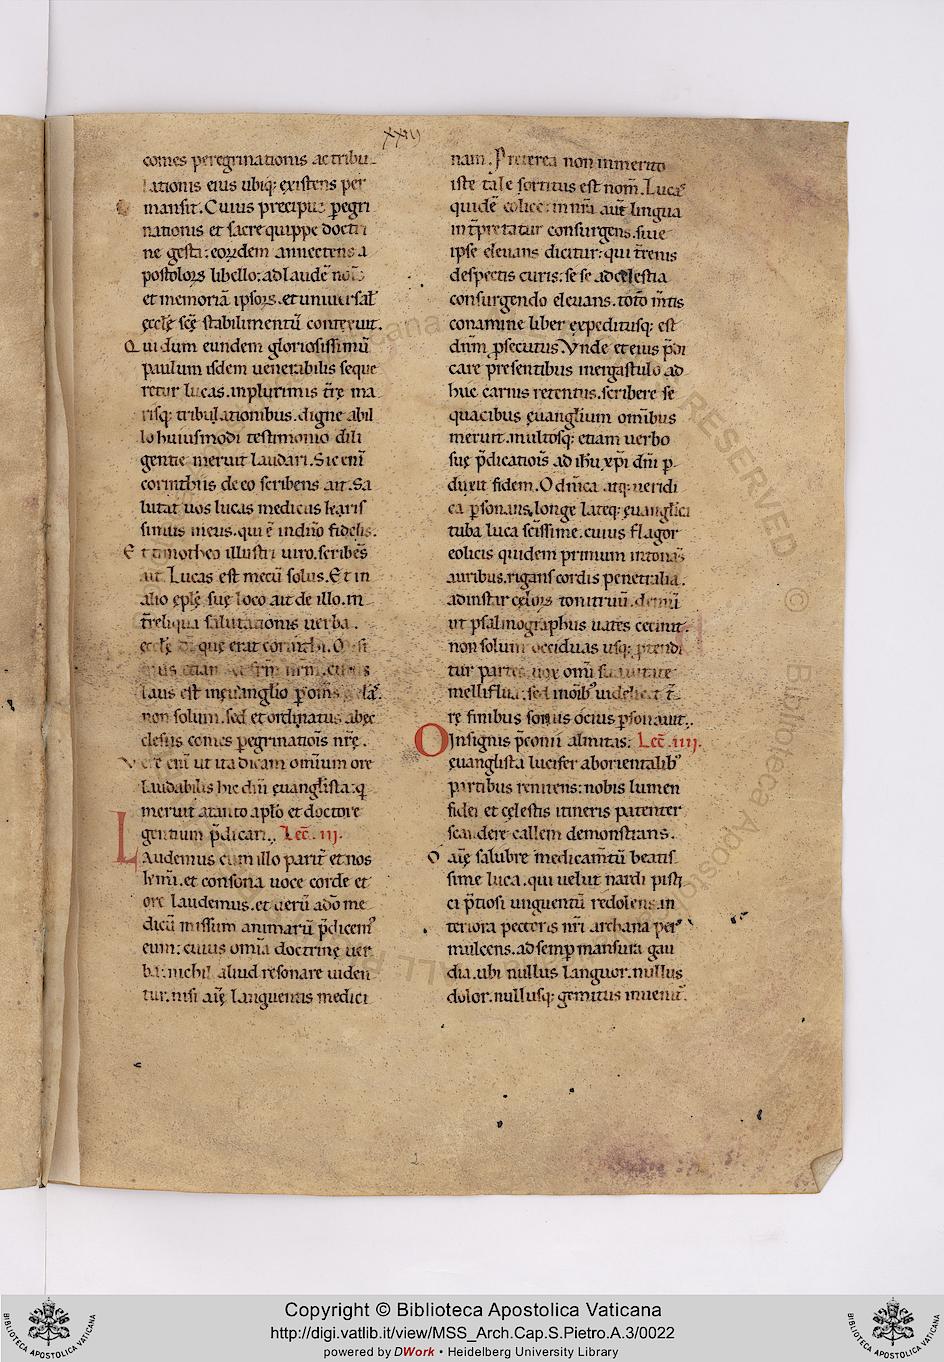 xxiiij
comes peregrinationis ac tribu
lationis eius ubiq; ęxistens per
mansit. Cuius precipuę p̱egri
nationis et sacre quippe doctri
ne gesta: eoꝝdem annectens a
postoloꝝ libello: ad laudē nom̄
et memoriā ipsoꝝ. et uniuersał
ęcclę̄ scę̄ stabilimentū contexuit.
Qui dum eundem gloriosissimū
paulum isdem uenerabilis seque
retur lucas. in plurimis t̄rę ma
risq; tribulationibus. digne abil
lo huiusmodi testimonio dili
gentię meruit laudari. Sic eni̅
corinthiis de eo scribens ait. Sa
lutat uos lucas medicus karis
simus meus. qui ē in dn̄o fidelis.
Et timotheo illustri uiro. scribēs
ait. Lucas est mecū solus. Et in
alio ęplę̄ suę loco ait de illo. in
t̄ reliqua salutationis uerba.
ecclę̄ dī que erat corinthi.
frm̄ nrm̄. cuius
laus est in ęuanglio p̱ om̄s
non solum. sed et ordinatus abęc
clesiis comes p̱egrinatioīs nrę̄.
Vere eni̅ ut ita dicam omnium ore
laudabilis hic dn̄i ęuanglīsta: q̱
meruit a tanto apłō et doctore
gentium p̄dicari. Lec̄. iij.
Laudemus cum illo parit̄ et nos
kr̄mi. et consona uoce corde et
ore laudemus. et uerū adō me
dicū missum animarū p̄dicem᾽
eum: cuius omīa doctrinę uer
ba: nichil aliud resonare uiden
tur. nisi aīę languentis medici
nam. Preterea non inmerito
iste tale sortitus est nom̄. Lucas
quidē eolice: in nrā aut̄ē lingua
int̄pretatur consurgens. siue
ipse eleuans dicitur: qui t̄renis
despectis curis: se se ad cęlestia
consurgendo eleuans. toto m̄tis
conamine liber ęxpeditusq; est
dn̄m p̱secutus. Vnde et eius p̄di
care presentibus in ergastulo ad
huc carnis retentus. scribere se
quacibus ęuanglium omībus
meruit. multosq; etiam uerbo
suę p̄dicatioīs ad ih̄u xp̄i dn̄i p̱
duxit fidem. O dn̄ica atq; ueridi
ca p̱sonans, longe lateq; ęuanglīca
tuba luca sc̄issime. cuius flagor
eolicis quidem primum intonans
auribus. rigans cordis penetralia.
ad instar cęloꝝ tonitruū. demū
ut psalmographus uates cecinit
non solum occiduas usq; p̱tendi
tur partes uox omī suauitate
melliflua: sed in oīb᾽ uidelicet t̄
rę finibus sonus ocius p̱sonauit.
O insignis p̄conii almitas: Lec̄. iiij.
ęuanglīsta lucifer ab orientalib᾽
partibus renitens: nobis lumen
fidei et cęlestis itineris patenter
scandere callem demonstrans.
O aūę salubre medicam̄tū beatis
sime luca. qui uelut nardi pisti
ci p̄tiosi unguentū redolens. in
teriora pectoris nr̄i archana per
mulcens. ad semp̱ mansura gau
dia. ubi nullus languor. nullus
dolor. nullusq; gemitus inuenit̄.
Copyright © Biblioteca Apostolica Vaticana
http://digi.vatlib.it/view/MSS_Arch.Cap.S.Pietro.A.3/0022
powered by DWork • Heidelberg University Library
BIBLIOTECA APOSTOLICA VATICANA
BIBLIOTECA APOSTOLICA VATICANA